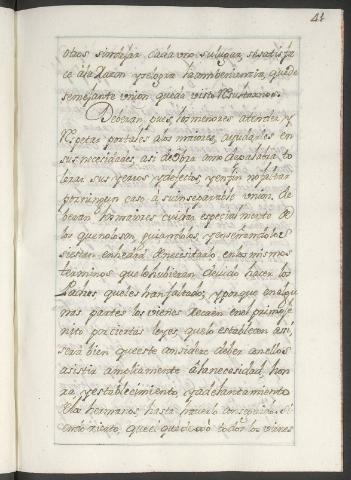 41
otros sin dejar cada uno su lugar, se satisfa
ce a la Razon y se logra la combeniencia, que de
semejante union queda visto
Deberan, pues, los menores atender, y
Respetar por tales a los maiores, ayudarles en
sus necesidades, asi de obra como de palabra, to
lerar sus yerros y defectos, y en fin no faltar
por ningun caso a su inseparable union. De
beran los maiores cuidar especialmente de
los que no lo son guiandolos, y enseñandoles
si estan en hedad de necesitarlo, en los mismos
terminos que lo hubieran devido hacer los
Padres que les han faltado; y porque en algu
nas partes los vienes Recaen en el primoge
nito por ciertas leyes, que lo establecen asi,
será bien que este considere deber con ellos
asistir ampliamente á la necesidad, hon
ra, y establecimiento, y adelantamiento
de los hermanos hasta haverlo conseguido,
endo cierto, que el que llevó todos los vienes